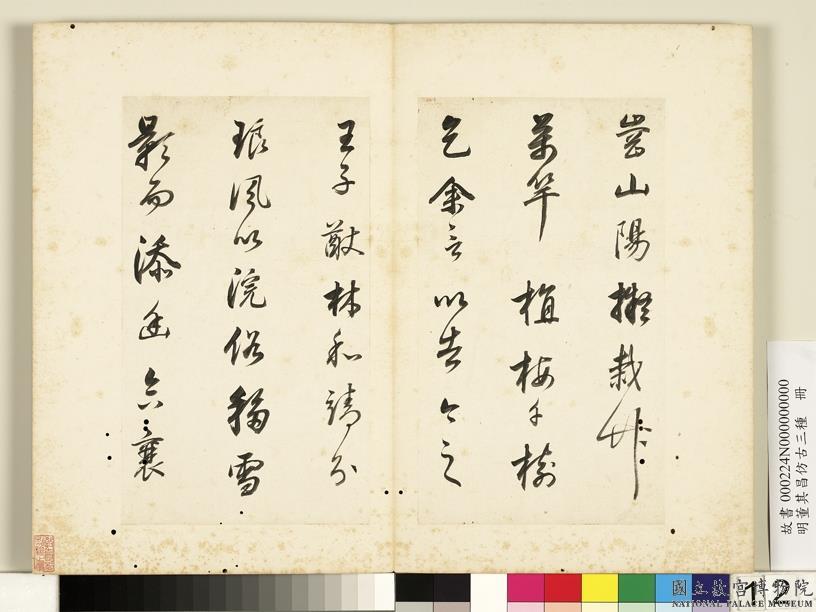 嵩山陽擬栽竹
萬竿植梅千樹
乞余言以告今之
王子猷林和靖分
琅風以浣俗移雪
影而添
故書 000224N000000000
明董其昌仿古三種 冊
國立故宮博物院
NATIONAL PALACE MUSEUM
12